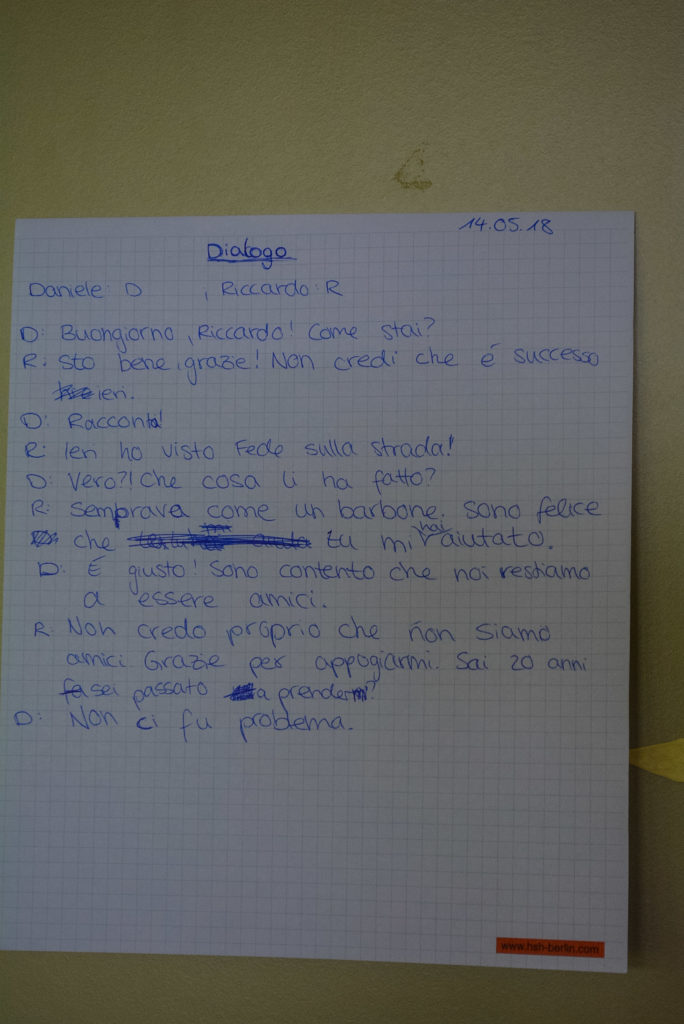 14.05.18
Dialogo
Daniele: D , Riccardo: R
D: Buongiorno, Riccardo! Come stai?
R: Sto bene, grazie! Non credi che é successo
ieri.
D: Racconta!
R: Ieri ho visto Fede sulla strada!
D: Vero?! Che cosa li ha fatto?
R: Semprava come un barbone. Sono felice
che tu mi hai aiutato.
D: É giusto! Sono contento che noi restiamo
a essere amici.
R: Non credo proprio che non siamo
amici. Grazie per appogiarmi. Sai 20 anni
fa sei passato a prendermi?
D: Non ci fu problema.
www.hsh-berlin.com